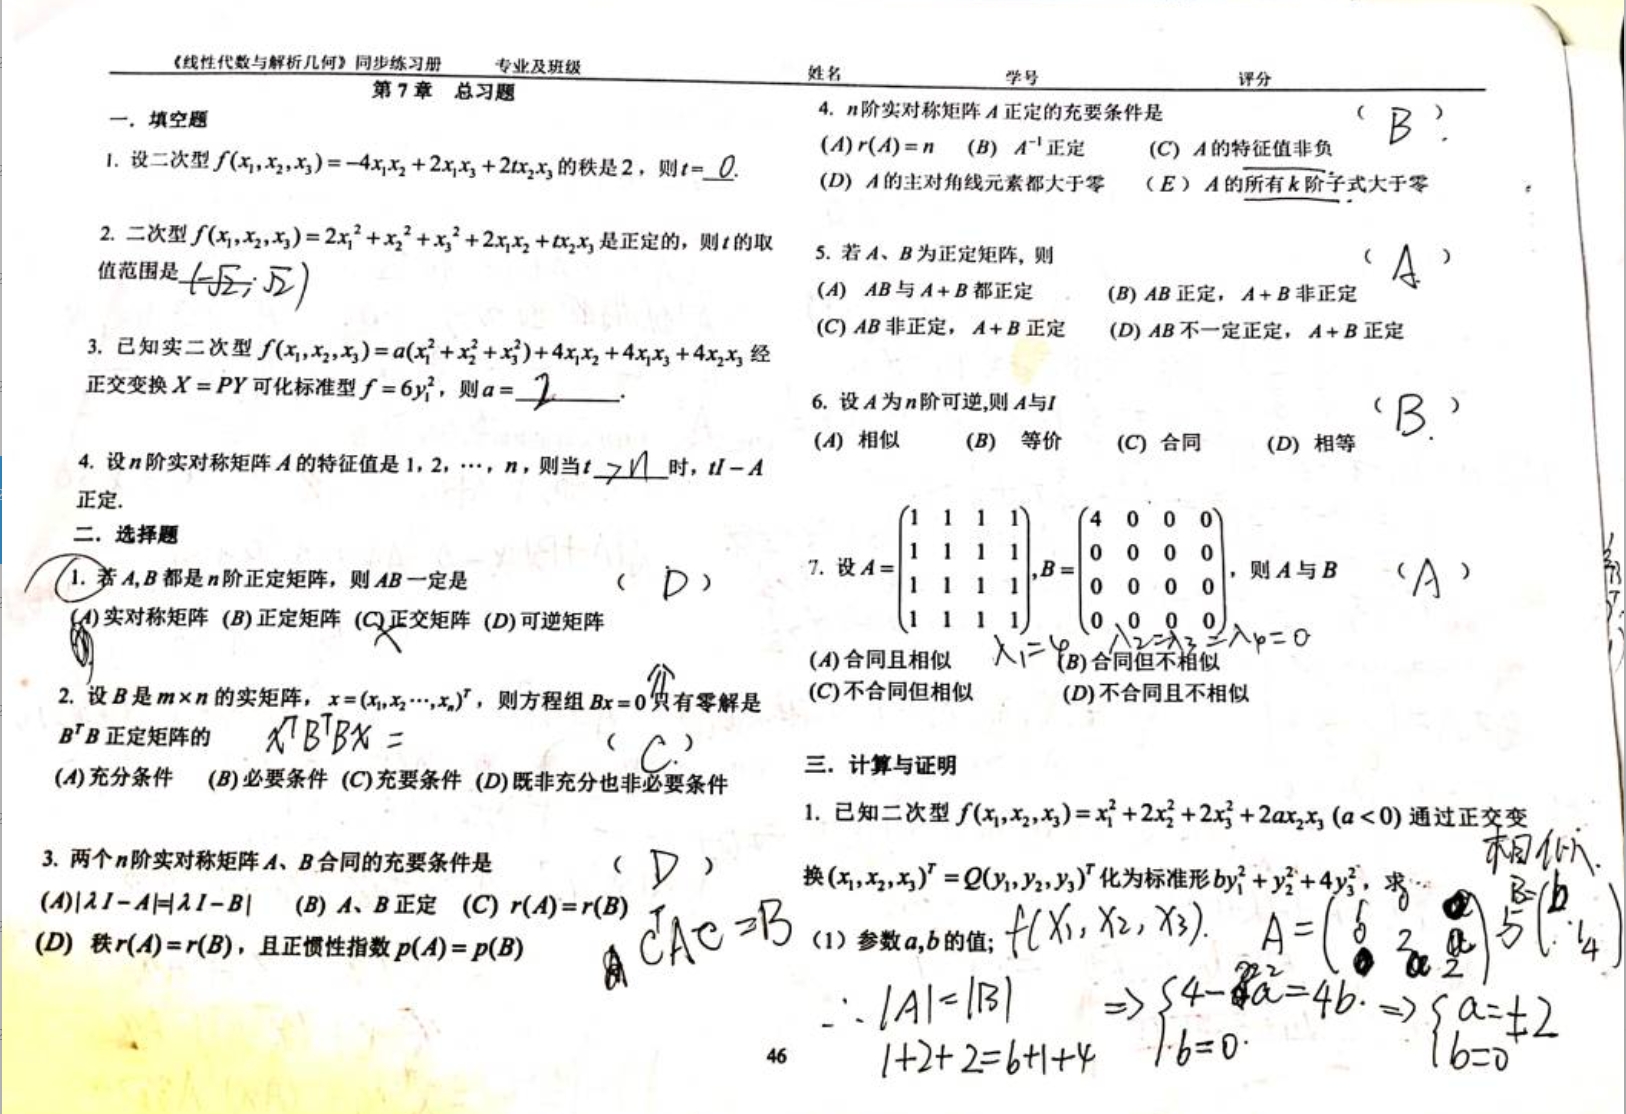 《线性代数与解析几何》同步练习册 专业及班级 姓名 学号 评分
第7章 总习题
一. 填空题
1. 设二次型 f(x₁,x₂,x₃)=-4x₁x₂+2x₁x₃+2tx₂x₃ 的秩是2, 则t=0.
2. 二次型 f(x₁,x₂,x₃)=2x₁²+x₂²+x₃²+2x₁x₂+tx₂x₃ 是正定的, 则t的取
值范围是 (-√2, √2)
3. 已知实二次型 f(x₁,x₂,x₃)=a(x₁²+x₂²+x₃²)+4x₁x₂+4x₁x₃+4x₂x₃ 经
正交变换 X=PY 可化标准型 f=6y₁², 则a= 2 .
4. 设n阶实对称矩阵A的特征值是1, 2, ⋯, n, 则当t >n 时, tI-A
正定.
二. 选择题
1. 若A,B都是n阶正定矩阵, 则AB一定是 ( D )
(A)实对称矩阵 (B)正定矩阵 (C)正交矩阵 (D)可逆矩阵
2. 设B是m×n的实矩阵, x=(x₁,x₂⋯,xₙ)ᵀ, 则方程组Bx=0只有零解是
BᵀB正定矩阵的 xᵀBᵀBx= ( C. )
(A)充分条件 (B)必要条件 (C)充要条件 (D)既非充分也非必要条件
3. 两个n阶实对称矩阵A、B合同的充要条件是 ( D )
(A)|λI-A|=|λI-B| (B) A、B正定 (C) r(A)=r(B)
(D) 秩r(A)=r(B), 且正惯性指数p(A)=p(B)
CᵀAC=B
4. n阶实对称矩阵A正定的充要条件是 ( B. )
(A) r(A)=n (B) A⁻¹正定 (C) A的特征值非负
(D) A的主对角线元素都大于零 (E) A的所有k阶子式大于零
5. 若A、B为正定矩阵, 则 ( A )
(A) AB与A+B都正定 (B) AB正定, A+B非正定
(C) AB非正定, A+B正定 (D) AB不一定正定, A+B正定
6. 设A为n阶可逆,则A与I ( B. )
(A) 相似 (B) 等价 (C) 合同 (D) 相等
7. 设A=(1 1 1 1; 1 1 1 1; 1 1 1 1; 1 1 1 1), B=(4 0 0 0; 0 0 0 0; 0 0 0 0; 0 0 0 0), 则A与B ( A )
λ₁=4 λ₂=λ₃=λ₄=0
(A)合同且相似 (B)合同但不相似
(C)不合同但相似 (D)不合同且不相似
三. 计算与证明
1. 已知二次型 f(x₁,x₂,x₃)=x₁²+2x₂²+2x₃²+2ax₂x₃ (a<0) 通过正交变
相似.
换(x₁,x₂,x₃)ᵀ=Q(y₁,y₂,y₃)ᵀ化为标准形by₁²+y₂²+4y₃², 求
(1) 参数a,b的值; f(x₁, x₂, x₃).
∴ |A|=|B| ⇒ 4-a²=4b. ⇒ a=±2
1+2+2=b+1+4 b=0. b=0
46